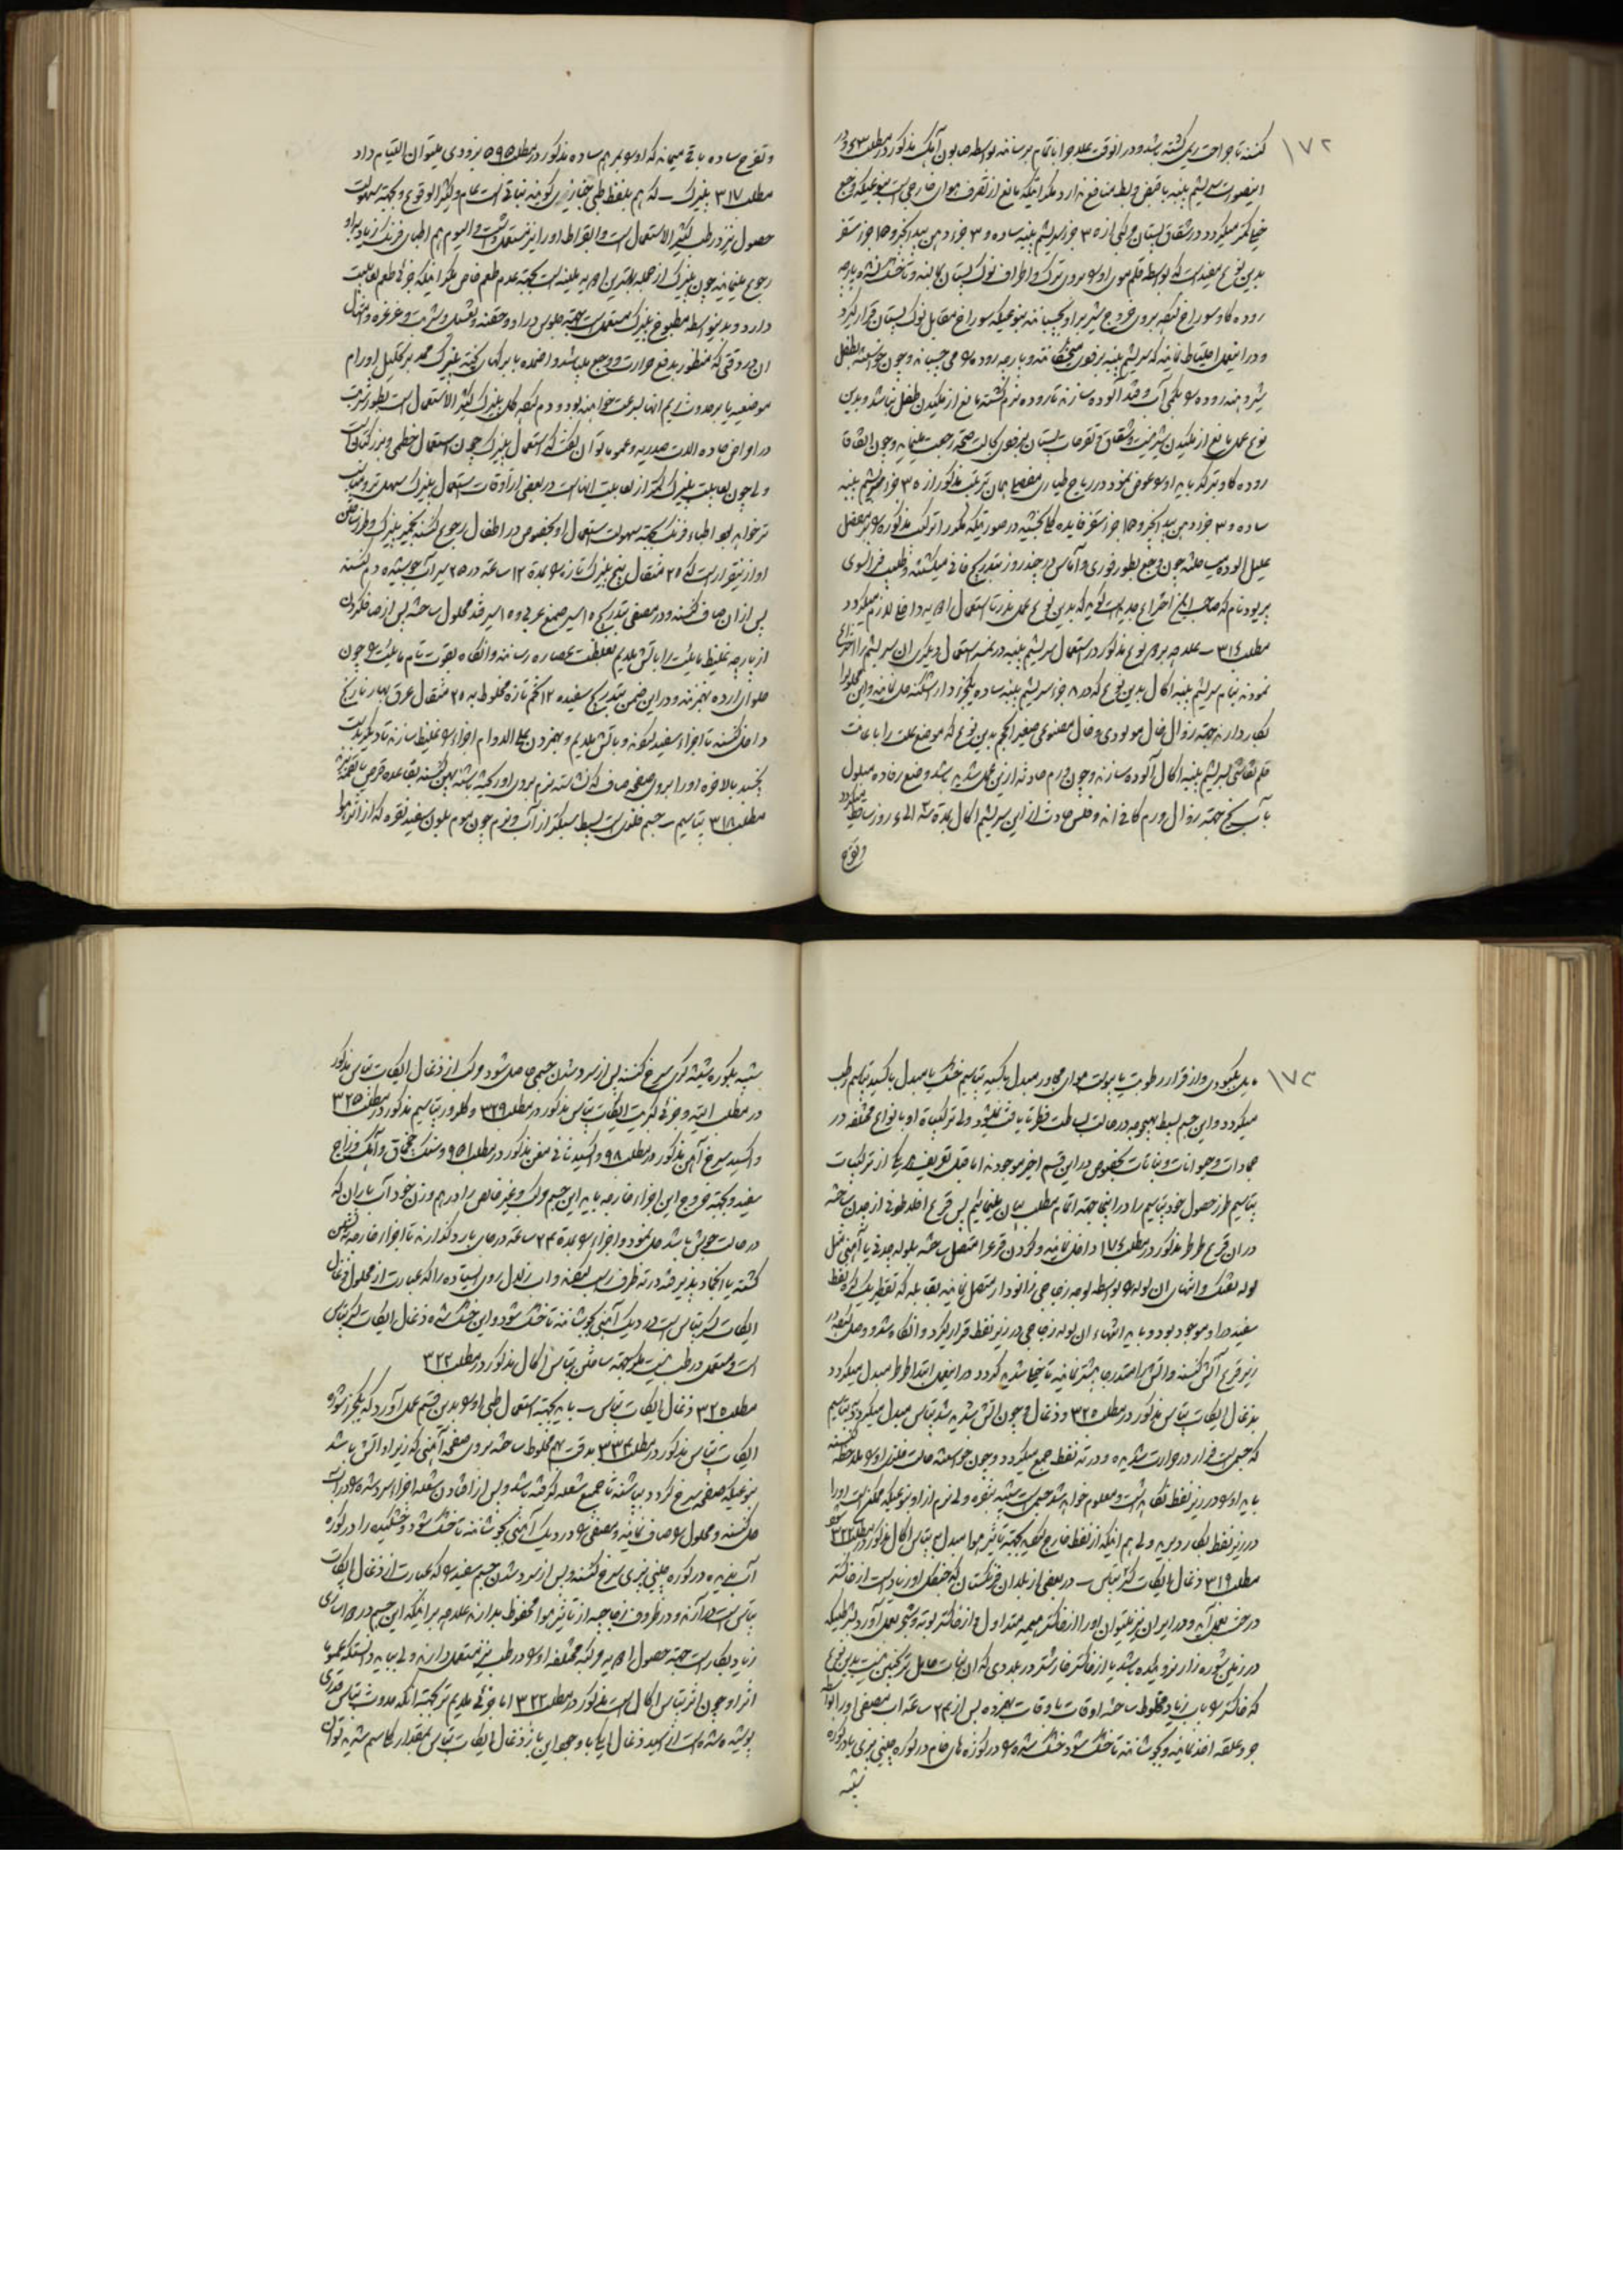 ۱۷۲
کنند تا جراحت ریمی گشته باشد و در انوقت علاج را باتمام برسانند بواسطه صابون آهک مذکور در مطلب
اینصورت سریشم پنبه با قبض و ربط منافع ندارد مگر اینکه مانع از تصرف هوای خارجی است بنوعیکه وجع
خیلی کمتر میگردد در شقاق پستان مرکبی از ۳۵ جزء سریشم پنبه ساده و ۳ جزء دهن بید انجیر و ۱۵ جزء سقز
بدین نوع مفید است که بواسطه قلم موی او را بروی ترک و اطراف نوک پستان بمالند و تا خشک نشده پارچه
روده گاو سوراخ بجهة بروی خروج شیر بر او بچسبانند بنوعیکه سوراخ مقابل نوک پستان قرار گیرد
و در اینعمل احتیاط نمایند که سریشم پنبه بفوری میخشکد و پارچه روده را می چسباند و چون خواسته بطفل
شیر دهند روده را بکمی آب و قند آلوده سازند تا روده نرم گشته مانع از مکیدن طفل نباشد و بدین
نوع عمل مانع از مکیدن شیر نیست و شقاق و تقرحات پستان بفوری بحالت صحة رجعت مینماید و چون اتفاقا
روده گاو بترکد باید او را عوض نمود در ریاح همان ترکیب مذکور از ۳۵ جزء سریشم پنبه
ساده و ۳ جزء دهن بید انجیر و ۱۵ جزء سقز فایده کلی بخشد در صورتیکه مکرر از ترکیب مذکور بر مفصل
علیل آلوده ساخته چون وجع بطور فوری و آماس در چند روز بتدریج فانی میگشته و طبیب فرانسوی
نام که صاحب این اختراع جدید است گوید که بدین نوع عمل بندرت استعمال ادویه داخلی لازم میگردد
مطلب ۳۱۶ علاجه بر دو نوع مذکور در استعمال سریشم پنبه در نمسه استعمال دیگری از سریشم را اختراع
نمودند بنام سریشم پنبه اکال بدین نوع که در ۸ جزء سریشم پنبه ساده یکجزء دارا شکنه حل نمایند و این محلول را
بکار دارند جهة زوال خال مولودی و خال مصنوعی صغیر الحجم بدین نوع که موضع علت را با
قلم نقاشی بسریشم پنبه اکال آلوده سازند و چون ورم حادثه از این عمل شدید باشد وضع رفاده مبلول
بآب یخ جهة زوال ورم کافی اند و فلس حادث از این سریشم اکال بمدة ۳ الی ۶ روز ساقط میگردد
و تقرح
و تقرح ساده باقی میماند که او را بمرهم ساده مذکور در مطلب ۵۹۵ بزودی میتوان التیام داد
مطلب ۳۱۷ پنیرک که هم بلفظ طبی خبازی گویند نباتی است عام و کثیر الوقوع و بجهة سهولت
حصول نیز در طب کثیر الاستعمال است و ابقراط او را نیز مستعمل داشت و الیوم هم اطبای فرنک زیاد بر او
رجوع مینمایند چون پنیرک از جمله بهترین ادویه ملینه است بجهة عدم طعم خاص مگر اینکه جزئی طعم لعابیت
دارد و بدینواسطه مطبوخ پنیرک مستعمل است بجهة جلوس در او و حقنه و تغسیل و شربت و غرغره و امثال
آن در وقتی که منظور بدفع حرارت و وجع باشد و ضماد یا برگهای پخته پنیرک ممد بر تحلیل اورام
موضعیه یا بر حدوث ریم انها بسرعت خواهند بود و دم کل پنیرک کثیر الاستعمال است بطور شربت
در امراض حاده الات صدریه و عموما توان گفت که استعمال پنیرک چون استعمال خطمی و بزر کتان است
ولی چون لعابیت پنیرک کمتر از لعابیت انها است در بعضی از اوقات استعمال پنیرک سهل تر و مناسب
تر خواهد بود اطباء فرنک بجهة سهولت استعمال او بخصوص در اطفال رجوع کنند بخمیر پنیرک و طرز ساختن
او از اینقرار است که ۲۵ مثقال بیخ پنیرک تازه را بمدة ۱۲ ساعة در ۲۵ سیر آب جوشیده دم کنند
پس از ان صاف کنند و در مصفی بتدریج ۱۵ سیر صمغ عربی و ۱۵ سیر قند محلول ساخته پس از صاف کردن
از پارچه غلیظ مایع را باتش ملایم بغلظت عصاره رسانند و انگاه بقوت تمام مایع را چون
حلوای ارده بهم زنند و در این ضمن بتدریج سفیده ۱۲ تخم تازه مخلوط به ۲۵ مثقال عرق بهار نارنج
داخل کنند تا اجزاء سفید گونه و باتش ملایم و بهم زدن علی الدوام اجزاء را غلیظ سازند تا دیگر
نچسبد بالاخره او را بروی صفحه صاف که نشاسته نرم بروی او ریخته باشند پهن کنند بقاعده قرص یا لقمه
مطلب ۳۱۸ پتاسیم جسم فلزی است بسیط سبکتر از آب و نرم چون موم بلون سفید نقره که از اثر هوا
۱۷۳
مایل بکبودی و از قرار رطوبت یا یبوست هوای مجاور مبدل باکسید پتاسیم خشک یا مبدل باکسید پتاسیم رطب
میگردد و این جسم بسیط بهیچوجه در حالت بساطت فطرتا یافت نمیشود ولی ترکیباة او بانواع مختلفه در
جمادات و حیوانات و نباتات بخصوص در این قسم اخیر موجودند اما قبل تعریف هر یک از ترکیبات
پتاسیم طرز حصول خود پتاسیم را در اینجا جهة اتمام مطلب بیان مینمائیم پس قرع از چدن ساخته
در ان قرع طرطر مذکور در مطلب ۱۷۶ داخل نمایند و گردن قرع را متصل ساخته بلوله چدنی یا آهنی مثل
لوله تفنک و انتهای ان لوله را بواسطه لوله زجاجی زانو دار متصل نمایند بقابله که نفط
سفید در او موجود بود و باید انتهاء ان لوله زجاجی در زیر نفط قرار گیرد و انگاه شروع در
زیر قرع آتش کنند و آتش را بتدریج بیشتر نمایند تا شدید گردد در اینعمل ابتدا طرطر مبدل میگردد
بذغال ایکات پتاس مذکور در مطلب ۳۲۵ و ذغال و چون آتش شدید شد پتاس مبدل میگردد بپتاسیم
که جسمی است فرار در حرارت شدیده و در ته نفط جمع میگردد و چون خواسته حالت فلزی او را ملاحظه کنند
باید او را در زیر نفط نگاه داشت و معلوم خواهد شد جسمی است شبیه بنقره ولی نرم تر از او بنوعیکه ممکن است او را
در زیر نفط بکارد برید ولی هم اینکه از نفط خارج بجهة تاثیر هوا مبدل به پتاس اکال مذکور در مطلب ۳۲۲
مطلب ۳۱۹ ذغال ایکات کثر پتاس در بعضی از بلدان فرنکستان که جنگل او زیاد است از خاکستر
درخت بعمل آید و در ایران نیز میتوان او را از خاکستر هیمه متداول و از خاکستر بوته و شیح بعمل آورد بشرطیکه
در زمین شوره زار نروئیده باشد یا از خاکستر خارشتر در بلادی که ان نبات حامل ترنجبین نیست بدین نوع
که خاکستر را باب زیاد مخلوط ساخته اوقات باوقات بهم زده پس از ۲۴ ساعة اب مصفی او را بواسطه
جر و علقه اخذ نمایند و بجوشانند تا خشک شود خشک شده را در کوزه های خام در کوره چینی پزی یا در کوره
شبیه
شبیه بکوره شیشه گری سرخ کنند پس از سرد شدن جسمی حاصل شود مرکب از ذغال ایکات پتاس مذکور
در مطلب آتیه و جزئی کبریت ایکات پتاس مذکور در مطلب ۳۲۹ و کلرور پتاسیم مذکور در مطلب ۳۲۵
و اکسید سرخ آهن مذکور در مطلب ۹۸ و اکسید ثانی مغن مذکور در مطلب ۹۵۱ و سنک چخماق و آهک و زاج
سفید و بجهة خروج این اجزاء خارجه باید این جسم مرکب و غیر خالص را در هم وزن خود آب باران که
در حالت جوش باشد حل نمود و اجزاء را بمدة ۲۴ ساعة در جای بارد گذارند تا اجزاء خارجه ته نشین
گشته یا انجماد پذیرفته در ته ظرف رسب کند و اب زلال روی ایستاده را که عبارت از محلول ذغال
ایکات کثر پتاس است در دیک آهنی بجوشانند تا خشک شود و این خشک شده ذغال ایکات کثر پتاس
است و مستعمل در طب نیست مگر بجهة ساختن پتاس اکال مذکور در مطلب ۳۲۲
مطلب ۳۲۰ ذغال ایکات پتاس باید بجهة استعمال طبی او را بدین قسم بعمل آورد که یکجزء شوره
ایکات پتاس مذکور در مطلب ۳۳۴ بدقت بهم مخلوط ساخته بروی صفحه آهنی که زیر او آتش باشد
بنوعیکه صفحه سرخ گردد بپاشند تا جمیع شعله گرفته باشد و پس از افتادن شعله اجزاء سرد شده را در اب
حل کنند و محلول را صاف نمایند و مصفی را در دیک آهنی بجوشانند تا خشک شود و خشکیده را در کوره
آب ندیده در کوره چینی پزی سرخ کنند و پس از سرد شدن جسم سفید را که عبارت از ذغال ایکات
پتاس است در آرند و در ظروف زجاجیه از تاثیر هوا محفوظ بدارند علاوه بر اینکه این جسم در دواسازی
زیاد بکار است جهة حصول ادویه مرکبه مختلفه او را در طب نیز مستعمل دارند ولی باید دانست که عموما
اثر او چون اثر پتاس اکال است مذکور در مطلب ۳۲۲ اما جزئی ملایم تر بجهة انکه حدوث پتاس
پوشیده شده است از اسید ذغال ایکا با وجود این باز ذغال ایکات پتاس بمقدار کلی سم شدید توان